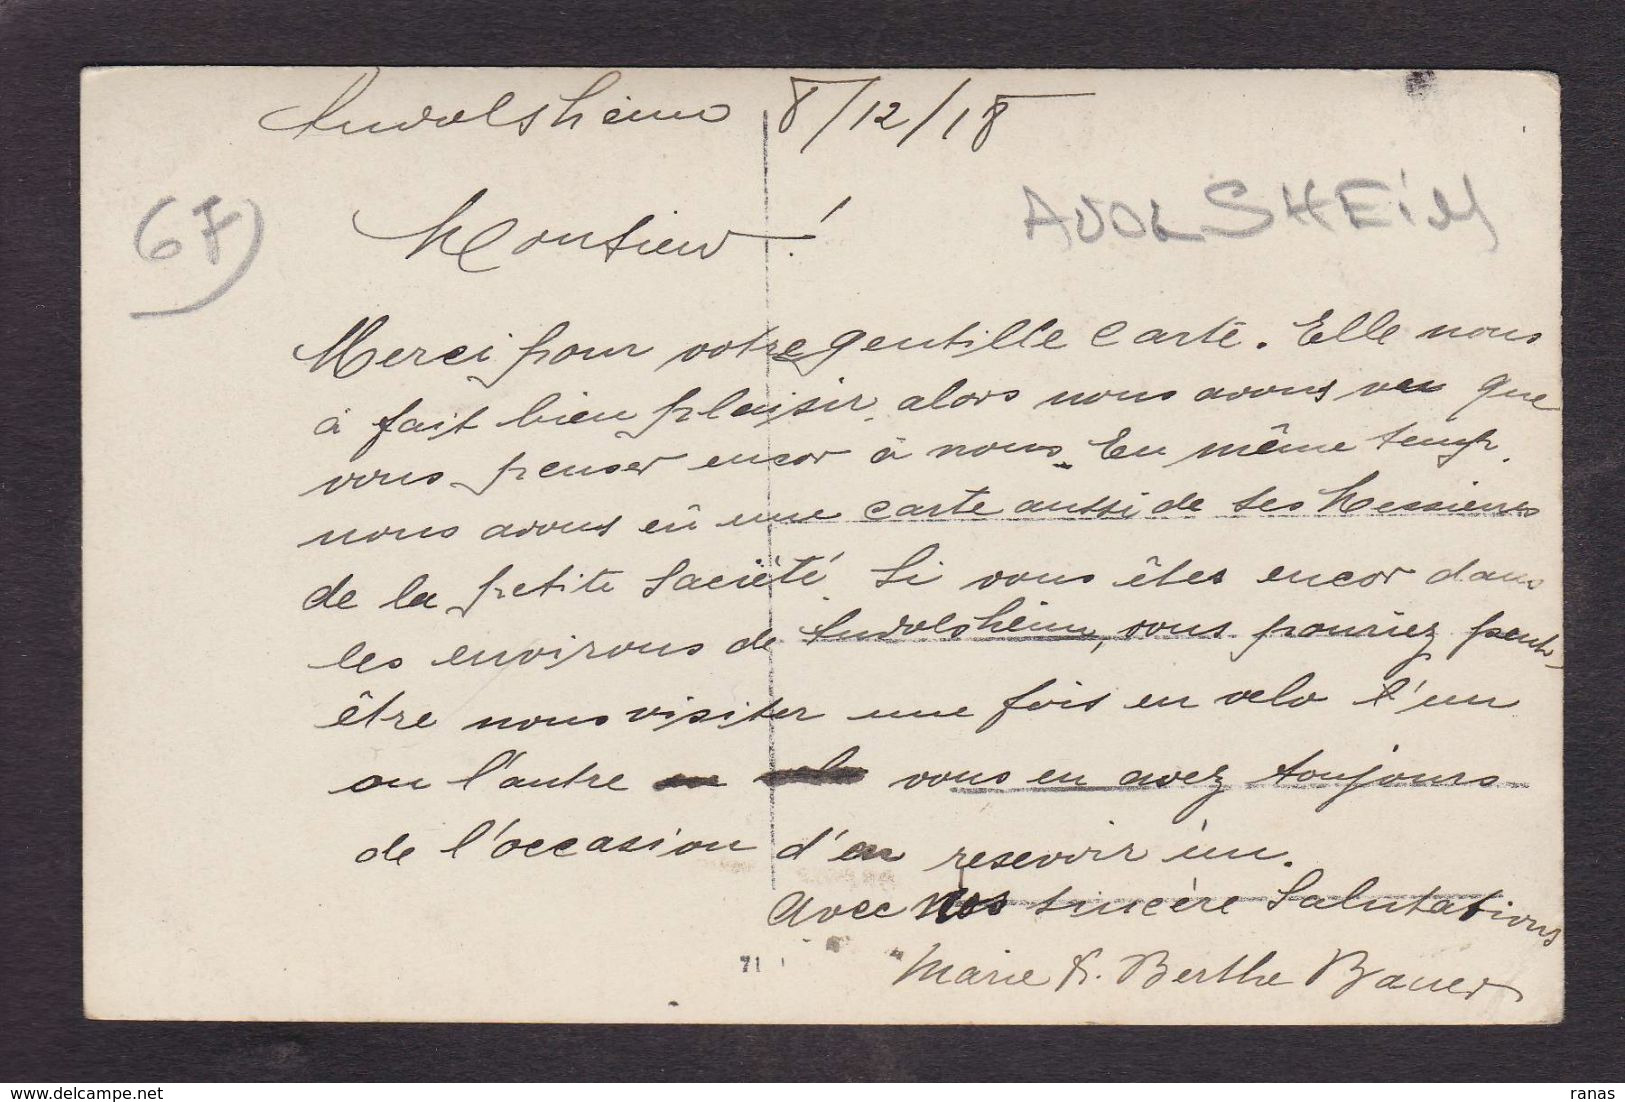 Andolsheim 8/12/18
67
AVOLSHEIM
Monsieur !
Merci pour votre gentille carte. Elle nous
à fait bien plaisir, alors nous avons vu que
vous penser encor à nous. En même temp
nous avons eû une carte aussi de ses Messieurs
de la petite Société. Si vous êtes encor dans
les environs de Andolsheim, vous pouriez peut-
être nous visiter une fois en velo l'un
ou l'autre vous en avez toujours
de l'occasion d'en resevoir un.
Avec nos sincère Salutations
Marie &. Berthe Bauer
71
ranas